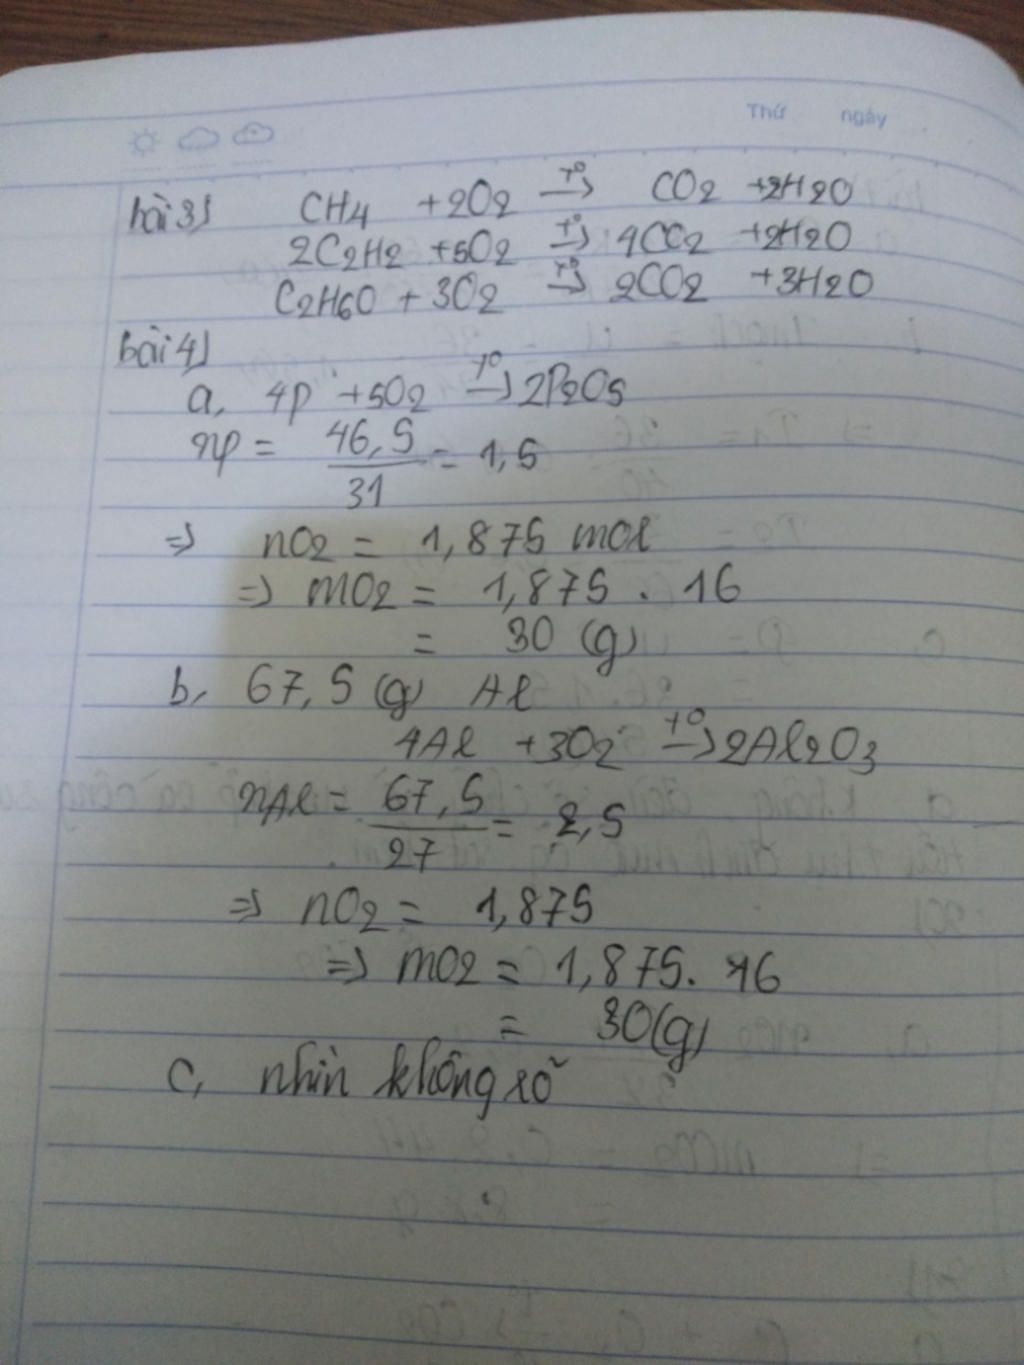 Thứ ngày
bài 3)
CH4 + 2O2 t°→ CO2 + 2H2O
2C2H2 + 5O2 t°→ 4CO2 + 2H2O
C2H6O + 3O2 t°→ 2CO2 + 3H2O
bài 4)
a, 4P + 5O2 t°→ 2P2O5
nP = 46,5/31 = 1,5
=> nO2 = 1,875 mol
=> mO2 = 1,875 . 16
= 30 (g)
b, 67,5 (g) Al
4Al + 3O2 t°→ 2Al2O3
nAl = 67,5/27 = 2,5
=> nO2 = 1,875
=> mO2 = 1,875. 16
= 30(g)
c, nhìn không rõ